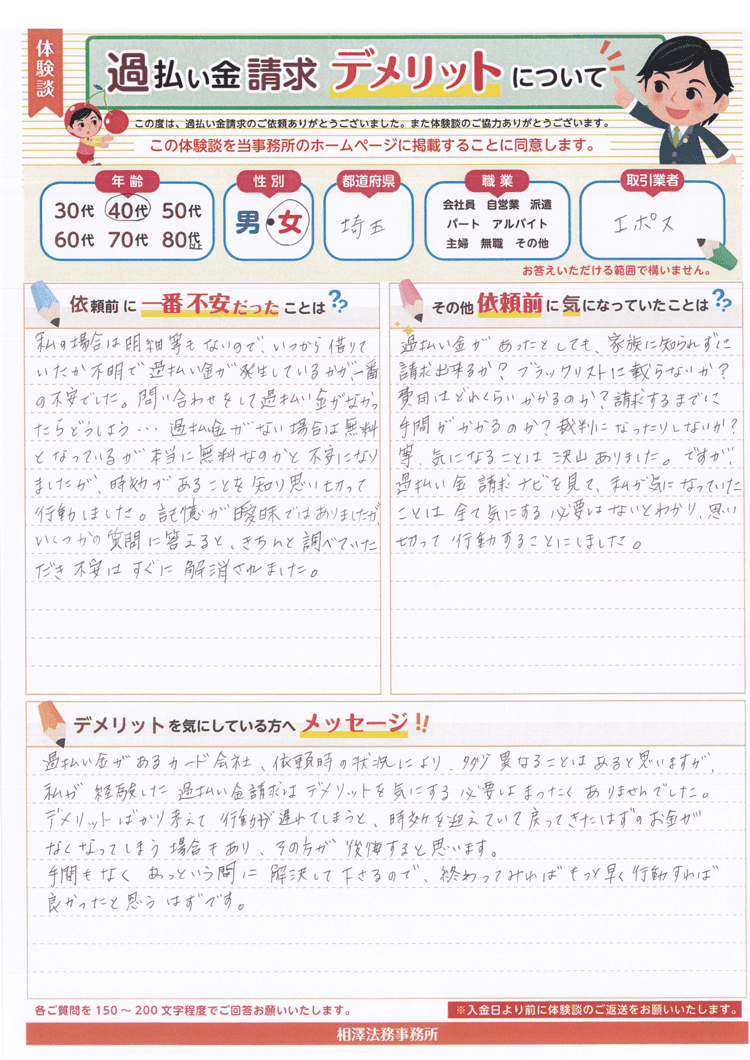 体験談
過払い金請求 デメリットについて
この度は、過払い金請求のご依頼ありがとうございました。また体験談のご協力ありがとうございます。
この体験談を当事務所のホームページに掲載することに同意します。
年齢
30代 40代 50代
60代 70代 80代以上
性別
男・女
都道府県
埼玉
職業
会社員 自営業 派遣
パート アルバイト
主婦 無職 その他
取引業者
エポス
お答えいただける範囲で構いません。
依頼前に一番不安だったことは??
私の場合は明細等もないので、いつから借りて
いたか不明で過払い金が発生しているかが、一番
の不安でした。問い合わせをして過払い金がなかっ
たらどうしよう… 過払金がない場合は無料
となっているが本当に無料なのかと不安になり
ましたが、時効があることを知り思い切って
行動しました。記憶が曖昧ではありましたが、
いくつかの質問に答えると、きちんと調べていた
だき不安はすぐに解消されました。
その他依頼前に気になっていたことは??
過払い金があったとしても、家族に知られずに
請求出来るか?ブラックリストに載らないか?
費用はどれくらいかかるのか?請求するまでに
手間がかかるのか?裁判になったりしないか?
等、気になることは沢山ありました。ですが、
過払い金請求ナビを見て、私が気になっていた
ことは全て気にする必要はないとわかり、思い
切って行動することにしました。
デメリットを気にしている方へメッセージ!!
過払い金があるカード会社、依頼時の状況により、多少異なることはあると思いますが、
私が経験した過払い金請求はデメリットを気にする必要はまったくありませんでした。
デメリットばかり考えて行動が遅れてしまうと、時効を迎えていて戻ってきたはずのお金が
なくなってしまう場合もあり、その方が後悔すると思います。
手間もなくあっという間に解決して下さるので、終わってみればもっと早く行動すれば
良かったと思うはずです。
各ご質問を150〜200文字程度でご回答お願いいたします。
※入金日より前に体験談のご返送をお願いいたします。
相澤法務事務所